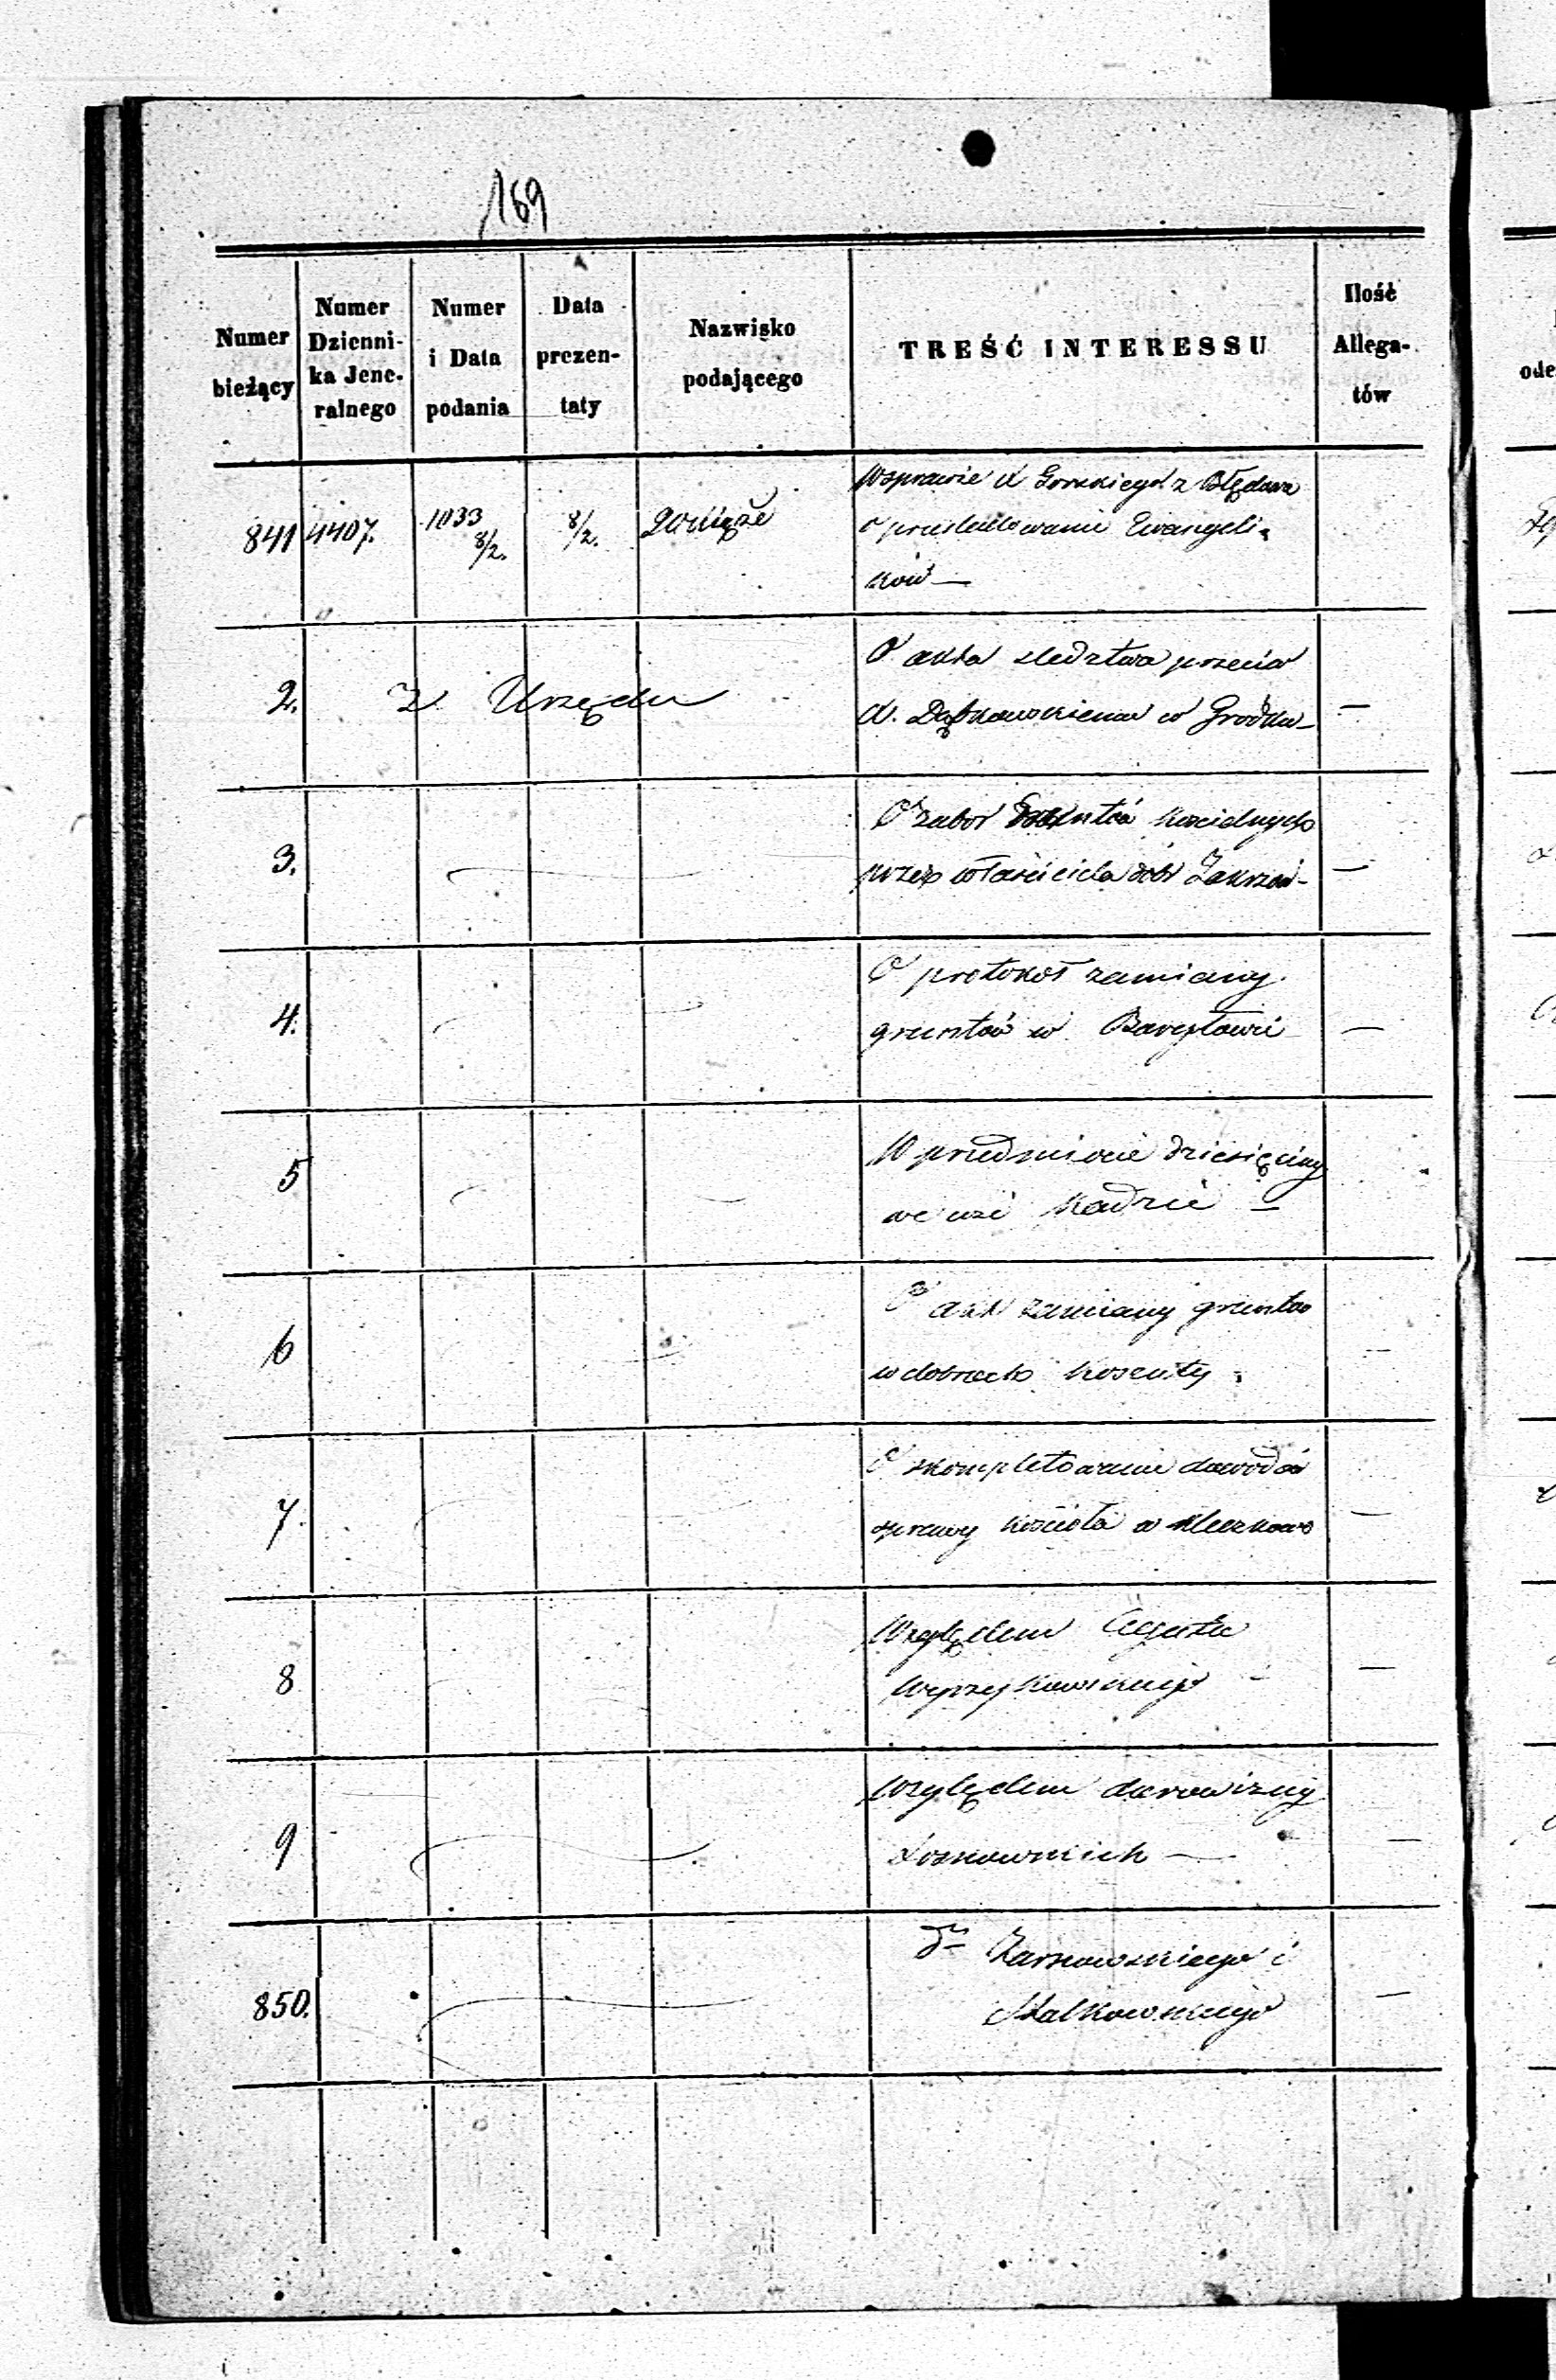 169
Numer bieżący
Numer Dziennika Jeneralnego
Numer i Data podania
Data prezentaty
Nazwisko podającego
TREŚĆ INTERESSU
Ilość Allegatów
841 4407. 1033 8/2. 8/2. W sprawie X Gorskiego z Błędowa
o prześladowanie Ewangeli=
ków —
2. Z Urzędu O akta śledztwa przeciw
X. Dąbkowskiemu w Gródku —
3. O zabór Gruntów kościelnych
przez właściciela dóbr Zakrzew —
4. O protokół zamiany
gruntów w —
5 W przedmiocie dziesięciny
we wsi Kadzie —
6 O akt zamiany gruntów
w dobrach —
7. O skompletowanie dowodów
sprawy kościoła w Kleczkowo —
8 Względem
—
9 Względem darowizny
—
850. dto Żarnowskiego i
Małkowskiego —